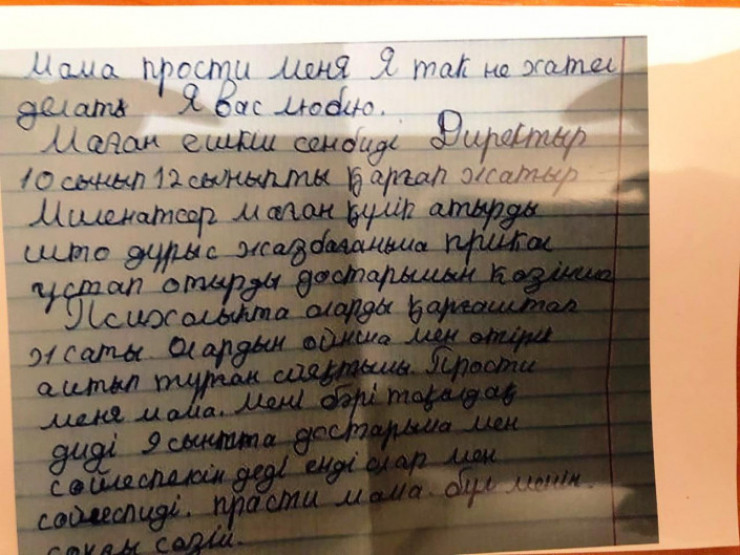 Мама прости меня Я так не хател
делать Я вас люблю.
Маған ешкім сенбиді Директыр
10 сынып 12 сыныпты қарғап жатыр
Миленатсор маған күліп атырды
што дұрыс жазбағаныма прикол
ұстап отырды достарымын көзінша
Психолыкта оларды қарғаштап
жаты. Олардын ойнша мен өтірік
аитып тұрған сияқтымы. Прости
меня мама. Мені бәрі
диді 9 сыныпта достарыма мен
сөйлеспекін деді енді олар мен
сөйлеспиді. прасти мама. бұл менін.
соңғы сөзім.